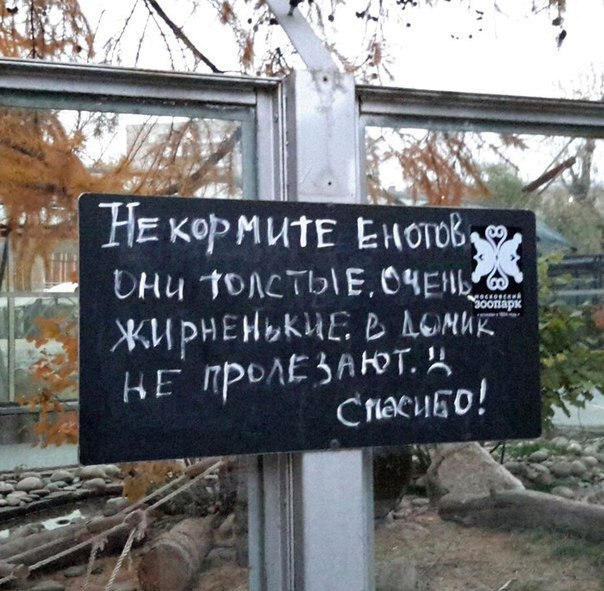 Не кормите енотов
они толстые. очень
жирненькие. в домик
не пролезают. :(
Спасибо!
московский
зоопарк